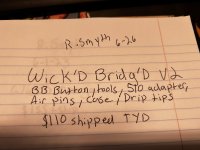 R.Smyth 6-26
Wick'D Bridg'D V2
BB Button, tools, 510 adapter,
Air pins, case, Drip tips
$110 shipped TYD